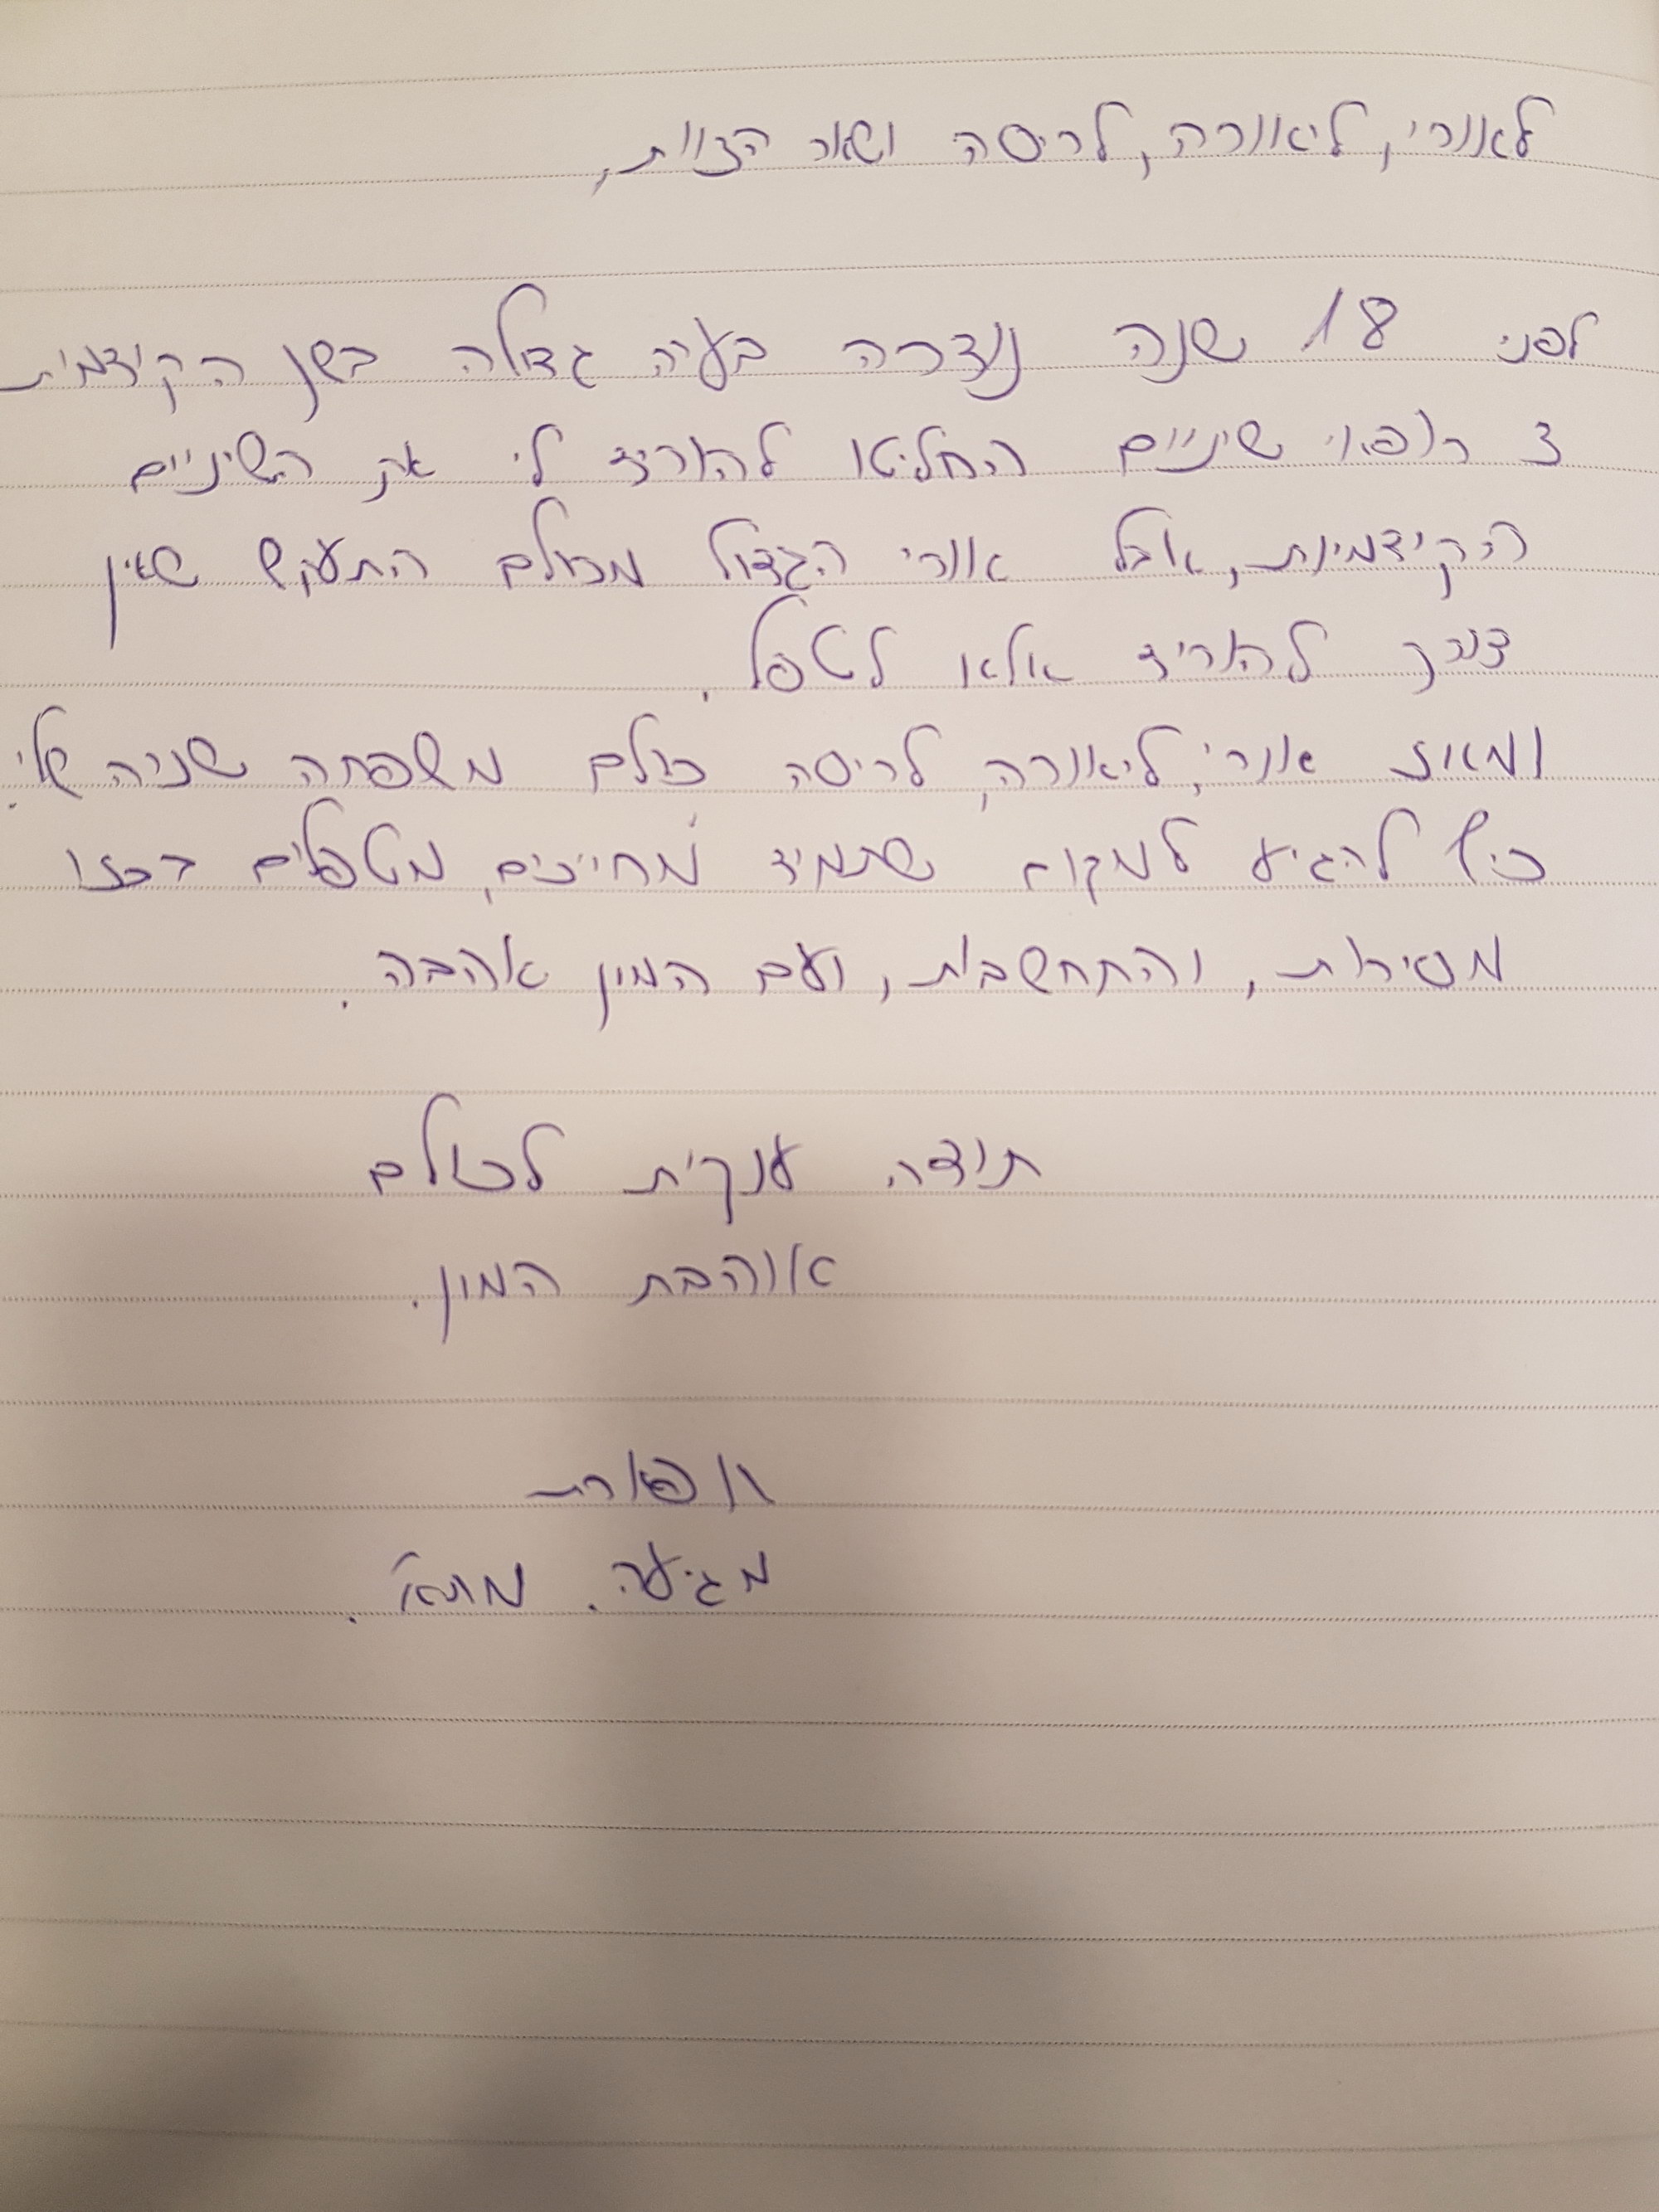 לאורי, ליאורה, לריסה ושאר הצוות,
לפני 18 שנה נוצרה בעיה גדולה בשן הקידמית
3 רופאי שיניים החליטו להוריד לי את השיניים
הקידמיות, אבל אורי הגדול מכולם התעקש שאין
צורך להוריד אלא לטפל.
ומאז אורי, ליאורה, לריסה כולם משפחה שניה שלי.
כיף להגיע למקום שתמיד מחייכים, מטפלים בכזו
מסירות, והתחשבות, ועם המון אהבה.
תודה ענקית לכולם
אוהבת המון.
מגיעה.